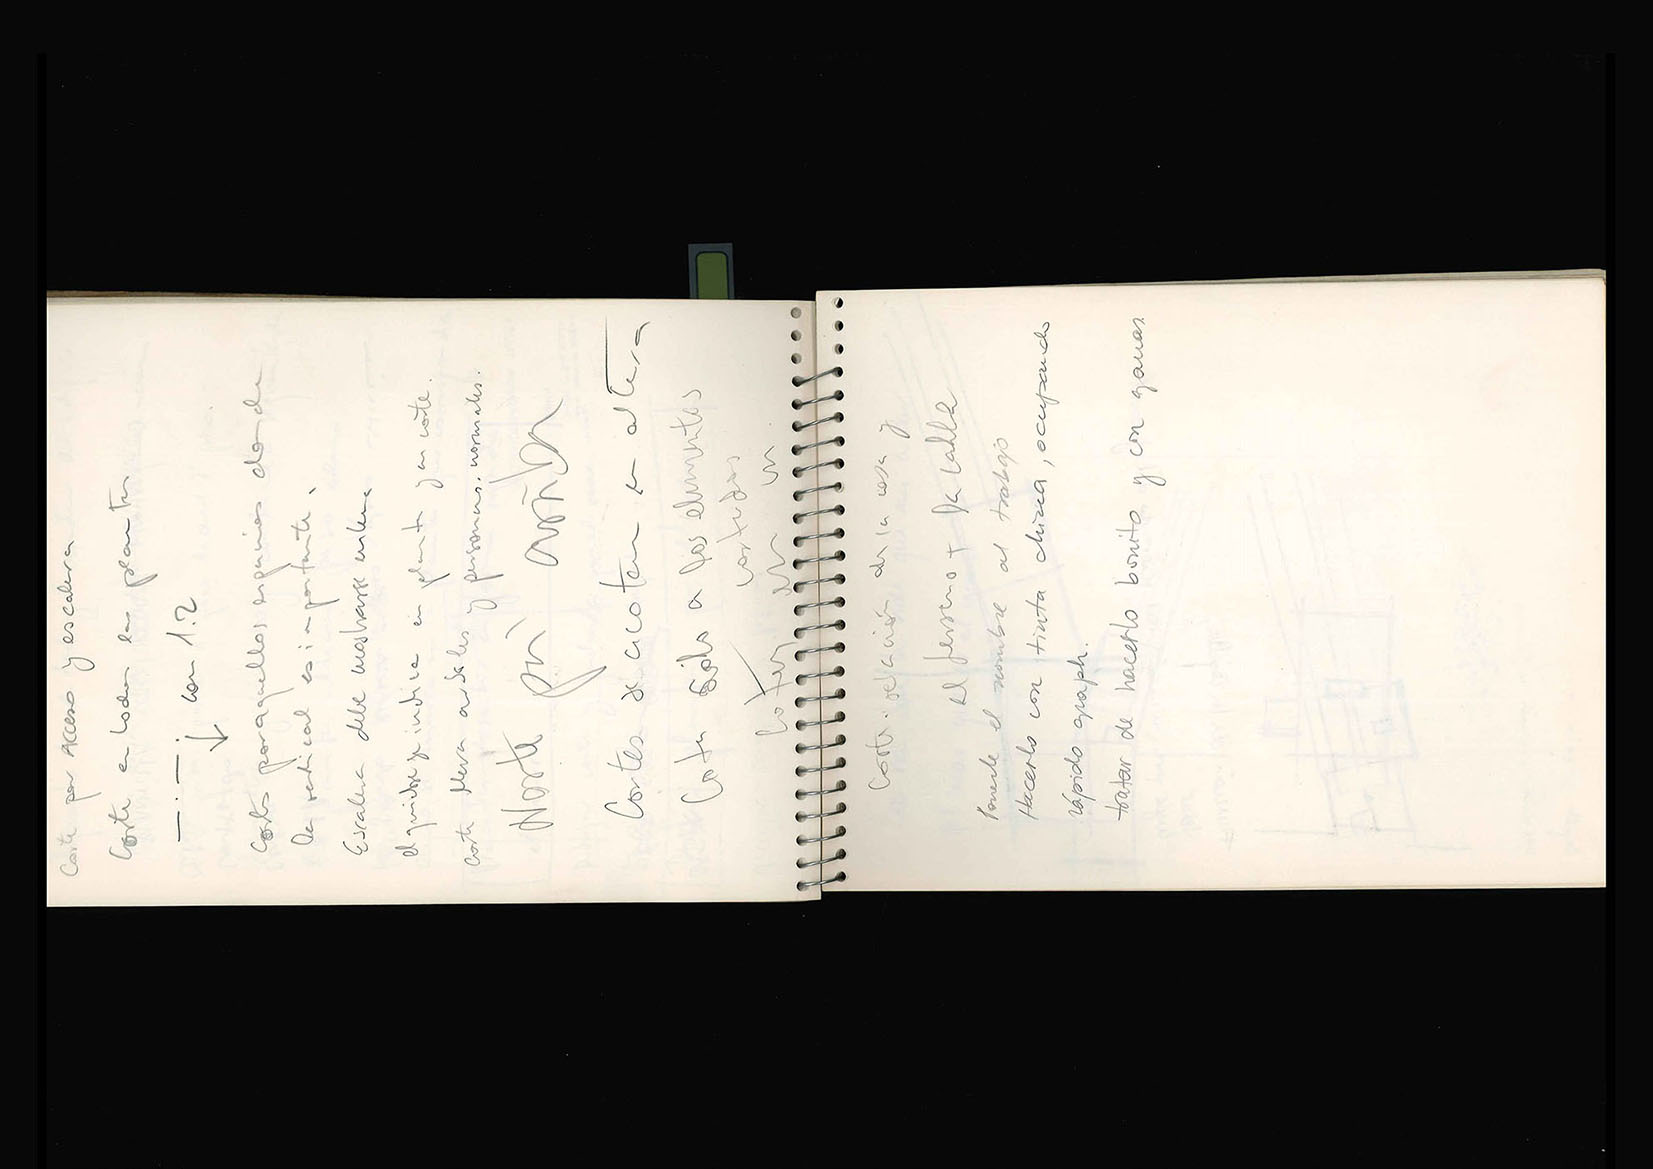 Corte por Acceso y escalera
Corte en todas las plantas
con 1.2
Corte por aquellos espacios donde
la vertical es importante.
Escalera debe mostrarse
el quiebre se indica en planta y en corte.
corte lleva árboles y personas, normales.
Norte pri arriba
Cortes se acotan en altura
Corte Sólo a los elementos
cortados
Corte: relación de la casa y
el terreno + la calle
Ponerle el nombre al trabajo
Hacerlo con tinta china, ocupando
rápido graph.
tratar de hacerlo bonito y con ganas